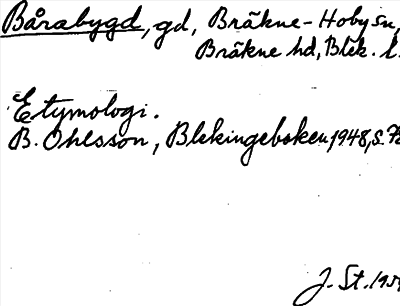 Bårabygd, gd, Bräkne-Hoby sn,
Bräkne hd, Blek. l.
Etymologi.
B. Ohlsson, Blekingeboken 1948, s.
J. St.